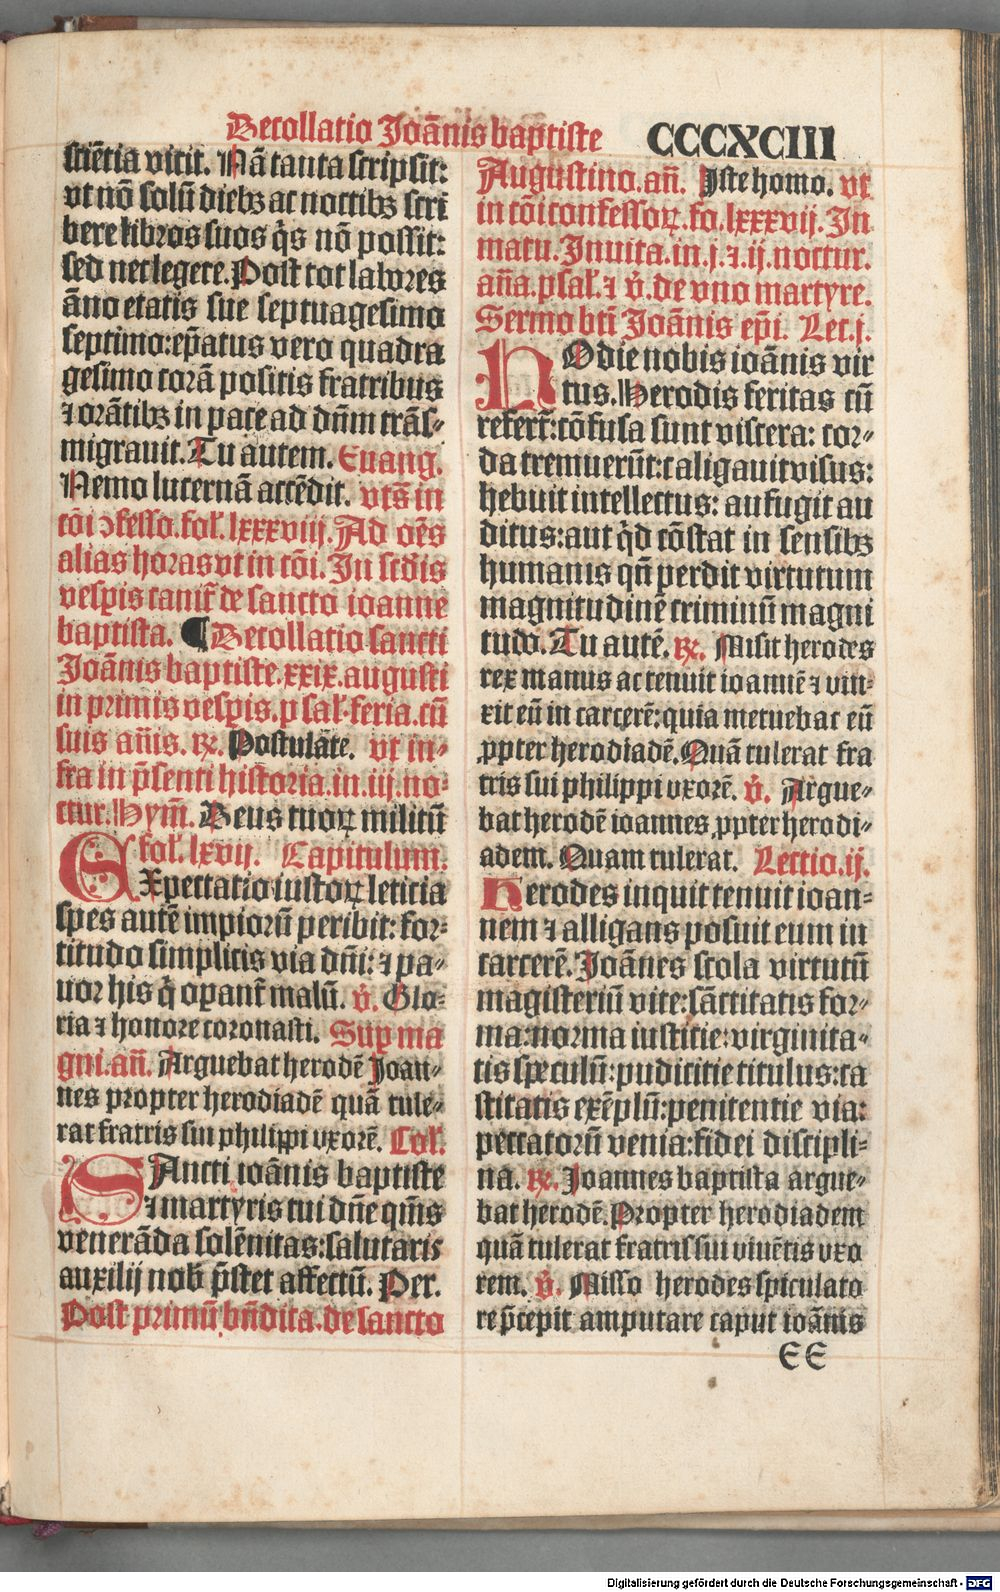 Decollatio Joānis baptiste CCCXCIII
sciētia vicit. Nā tanta scripsit:
vt nō solū diebꝫ ac noctibꝫ scri
bere libros suos q̇s nō possit:
sed nec legere. Post tot labores
āno etatis sue septuagesimo
septimo: ep̄atus vero quadra
gesimo corā positis fratribus
⁊ orātibꝫ in pace ad dn̄m trās⸗
migrauit. Tu autem. Euang.
Nemo lucernā accēdit. vts̄ in
cōi ↄfesso. fol̕. lxxxviij. Ad oēs
alias horas vt in cōi. In scd̄is
vesp̄is canit̄ de sancto ioanne
baptista. ¶ Decollatio sancti
Joānis baptiste. xxix. augusti
in primis vesp̄is. psal̕. feria. cū
suis añis. ℞. Postulāte. vt in⸗
fra in p̄senti historia. in. iij. no⸗
ctur. Hym̄. Deus tuoꝝ militū
fol̕. lxvij. Capitulum.
EXpectatio iustoꝝ leticia
spes autē impiorū peribit: for⸗
titudo simplicis via dn̄i: ⁊ pa⸗
uor his q̇ opant̄ malū. v̇. Glo⸗
ria ⁊ honore coronasti. Sup ma
gni. añ. Arguebat herodē Joan⸗
nes propter herodiadē quā tule⸗
rat fratris sui philippi vxorē. Col̕.
SAncti ioānis baptiste
⁊ martyris tui dn̄e qm̄s
venerāda solēnitas: salutaris
auxilij nob̄ p̄stet affectū. Per.
Post primū bn̄dica. de sancto
Augustino. añ. Iste homo. vt
in cōi confessoꝝ. fo. lxxxvij. In
matu. Inuita. in. j. ⁊. ij. noctur.
aña. psal̕. ⁊ v̇. de vno martyre.
Sermo bti Joānis ep̄i. Lec. j.
HOdie nobis ioānis vir
tus. Herodis feritas cū
refert̄: cōfusa sunt viscera: cor⸗
da tremuerūt: caligauit visus:
hebuit intellectus: aufugit au
ditus: aut q̇d cōstat in sensibꝫ
humanis qn̄ perdit virtutum
magnitudinē criminū magni
tudo. Tu autē. ℞. Misit herodes
rex manus ac tenuit ioannē ⁊ vin⸗
xit eū in carcerē: quia metuebat eū
ꝓpter herodiadē. Quā tulerat fra
tris sui philippi vxorē. v̇. Argue⸗
bat herodē ioannes ꝓpter herodi⸗
adem. Quam tulerat. Lectio. ij.
Herodes inquit tenuit ioan⸗
nem ⁊ alligans posuit eum in
carcerē. Joānes scola virtutū
magisteriū vite: sāctitatis for⸗
ma: norma iusticie: virginita⸗
tis speculū: pudicitie titulus: ca
stitatis exēplū: penitentie via:
peccatorū venia: fidei discipli⸗
na. ℞. Joannes baptista argue⸗
bat herodē. Propter herodiadem
quā tulerat fratris sui viuētis vxo
rem. v̇. Misso herodes spiculato
re p̄cepit amputare caput ioānis
EE
Digitalisierung gefördert durch die Deutsche Forschungsgemeinschaft - DFG